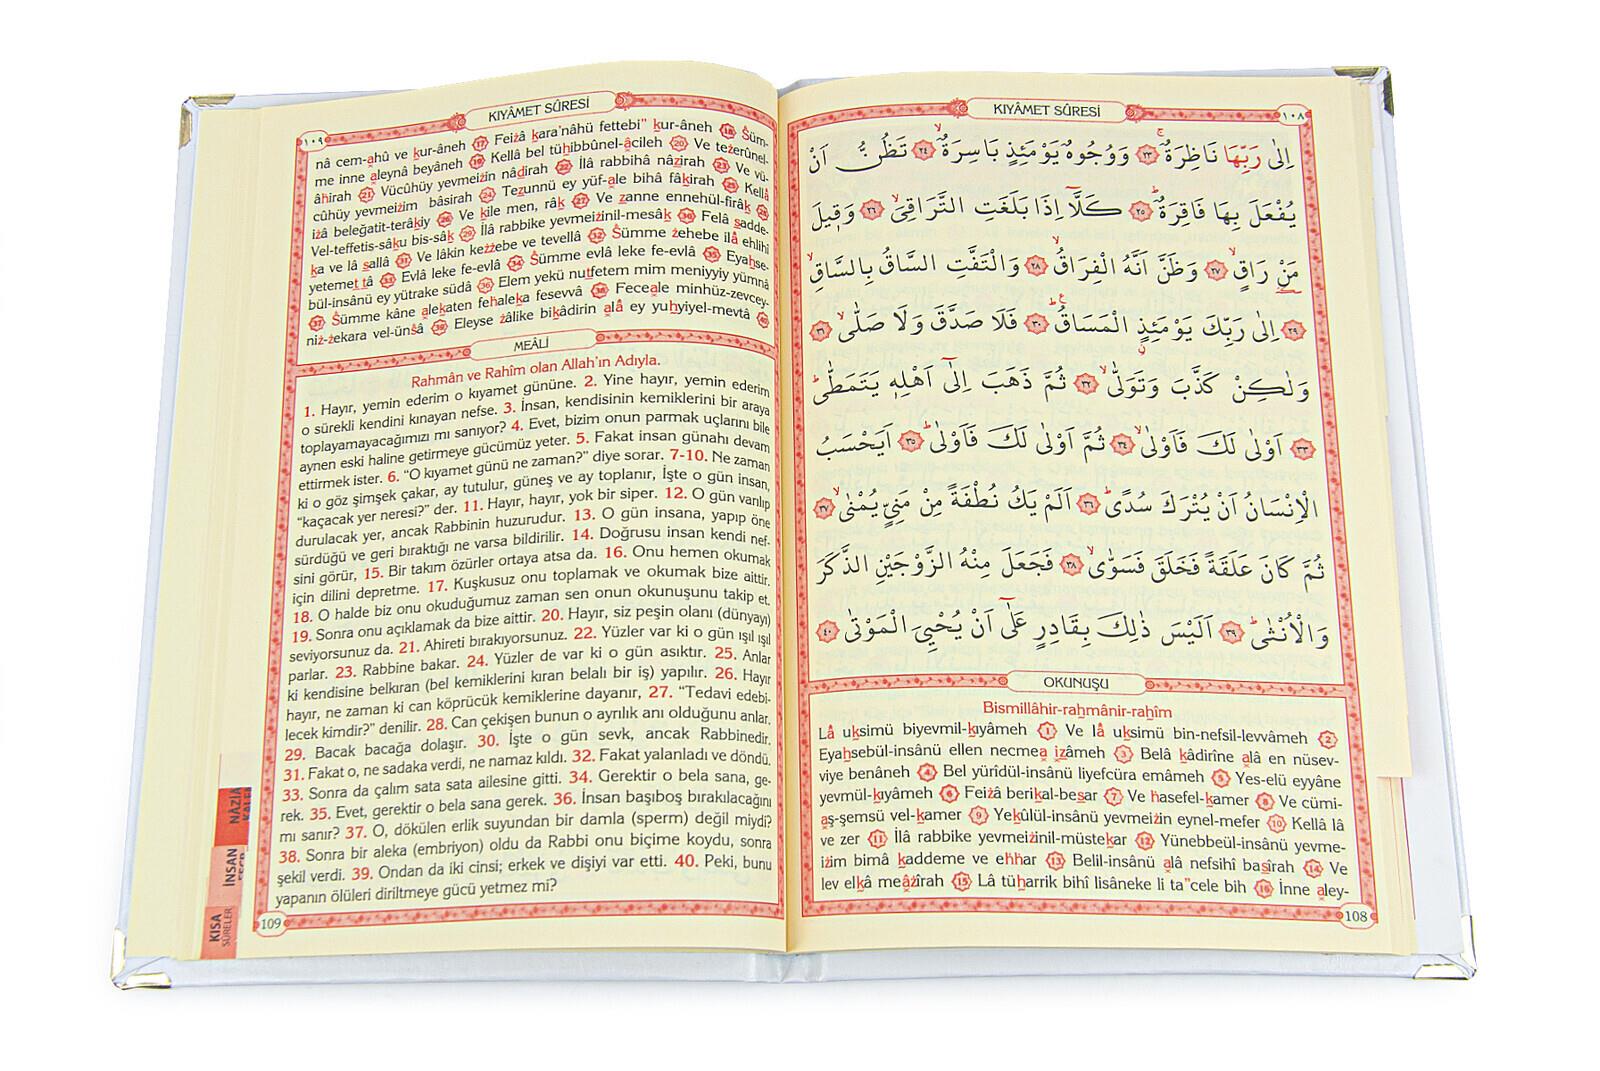 KIYÂMET SÛRESİ
١٠٨
اِلٰى رَبِّهَا نَاظِرَةٌۚ ﴿٢٣﴾ وَوُجُوهٌ يَوْمَئِذٍ بَاسِرَةٌۙ ﴿٢٤﴾ تَظُنُّ اَنْ
يُفْعَلَ بِهَا فَاقِرَةٌۜ ﴿٢٥﴾ كَلَّٓا اِذَا بَلَغَتِ التَّرَاقِيَۙ ﴿٢٦﴾ وَق۪يلَ
مَنْ رَاقٍۙ ﴿٢٧﴾ وَظَنَّ اَنَّهُ الْفِرَاقُۙ ﴿٢٨﴾ وَالْتَفَّتِ السَّاقُ بِالسَّاقِۙ
﴿٢٩﴾ اِلٰى رَبِّكَ يَوْمَئِذٍۨ الْمَسَاقُۜ ﴿٣٠﴾ فَلَا صَدَّقَ وَلَا صَلّٰىۙ ﴿٣١﴾
وَلٰكِنْ كَذَّبَ وَتَوَلّٰىۙ ﴿٣٢﴾ ثُمَّ ذَهَبَ اِلٰٓى اَهْلِه۪ يَتَمَطّٰىۜ
﴿٣٣﴾ اَوْلٰى لَكَ فَاَوْلٰىۙ ﴿٣٤﴾ ثُمَّ اَوْلٰى لَكَ فَاَوْلٰىۜ ﴿٣٥﴾ اَيَحْسَبُ
الْاِنْسَانُ اَنْ يُتْرَكَ سُدًىۜ ﴿٣٦﴾ اَلَمْ يَكُ نُطْفَةً مِنْ مَنِيٍّ يُمْنٰىۙ ﴿٣٧﴾
ثُمَّ كَانَ عَلَقَةً فَخَلَقَ فَسَوّٰىۙ ﴿٣٨﴾ فَجَعَلَ مِنْهُ الزَّوْجَيْنِ الذَّكَرَ
وَالْاُنْثٰىۜ ﴿٣٩﴾ اَلَيْسَ ذٰلِكَ بِقَادِرٍ عَلٰٓى اَنْ يُحْيِيَ الْمَوْتٰى ﴿٤٠﴾
OKUNUŞU
Bismillâhir-rahmânir-rahîm
Lâ uksimü biyevmil-kıyâmeh 1 Ve lâ uksimü bin-nefsil-levvâmeh 2
Eyahsebül-insânü ellen necmea izâmeh 3 Belâ kâdirîne alâ en nüsev-
viye benâneh 4 Bel yürîdül-insânü liyefcüra emâmeh 5 Yes-elü eyyâne
yevmül-kıyâmeh 6 Feiżâ berikal-besar 7 Ve hasefel-kamer 8 Ve cümi-
aş-şemsü vel-kamer 9 Yekûlül-insânü yevmeiżin eynel-mefer 10 Kellâ lâ
ve zer 11 İlâ rabbike yevmeiżinil-müstekar 12 Yünebbeül-insânü yevme-
iżim bimâ kaddeme ve ehhar 13 Belil-insânü alâ nefsihî basîrah 14 Ve
lev elkâ meâżîrah 15 Lâ tüharrik bihî lisâneke li ta"cele bih 16 İnne aley-
108
١٠٩
KIYÂMET SÛRESİ
nâ cem-ahû ve kur-âneh 17 Feiżâ kara'nâhü fettebi" kur-âneh 18 Ŝüm-
me inne aleynâ beyâneh 19 Kellâ bel tühibbûnel-âcileh 20 Ve teżerûnel-
âhirah 21 Vücûhüy yevmeiżin nâdirah 22 İlâ rabbihâ nâzirah 23 Ve vü-
cûhüy yevmeiżim bâsirah 24 Tezunnü ey yüf-ale bihâ fâkirah 25 Kellâ
iżâ beleğatit-terâkiy 26 Ve kîle men, râk 27 Ve zanne ennehül-firâk 28
Vel-teffetis-sâku bis-sâk 29 İlâ rabbike yevmeiżinil-mesâk 30 Felâ sadde-
ka ve lâ sallâ 31 Ve lâkin keżżebe ve tevellâ 32 Ŝümme żehebe ilâ ehlihî
yetemettâ 33 Evlâ leke fe-evlâ 34 Ŝümme evlâ leke fe-evlâ 35 Eyahse-
bül-insânü ey yütrake südâ 36 Elem yekü nutfetem mim meniyyiy yümnâ
37 Ŝümme kâne alekaten fehaleka fesevvâ 38 Feceale minhüz-zevcey-
niż-żekara vel-ünŝâ 39 Eleyse żâlike bikâdirin alâ ey yuhyiyel-mevtâ 40
MEÂLİ
Rahmân ve Rahîm olan Allah'ın Adıyla.
1. Hayır, yemin ederim o kıyamet gününe. 2. Yine hayır, yemin ederim
o sürekli kendini kınayan nefse. 3. İnsan, kendisinin kemiklerini bir araya
toplayamayacağımızı mı sanıyor? 4. Evet, bizim onun parmak uçlarını bile
aynen eski haline getirmeye gücümüz yeter. 5. Fakat insan günahı devam
ettirmek ister. 6. "O kıyamet günü ne zaman?" diye sorar. 7-10. Ne zaman
ki o göz şimşek çakar, ay tutulur, güneş ve ay toplanır, İşte o gün insan,
"kaçacak yer neresi?" der. 11. Hayır, hayır, yok bir siper. 12. O gün varılıp
durulacak yer, ancak Rabbinin huzurudur. 13. O gün insana, yapıp öne
sürdüğü ve geri bıraktığı ne varsa bildirilir. 14. Doğrusu insan kendi nef-
sini görür, 15. Bir takım özürler ortaya atsa da. 16. Onu hemen okumak
için dilini depretme. 17. Kuşkusuz onu toplamak ve okumak bize aittir.
18. O halde biz onu okuduğumuz zaman sen onun okunuşunu takip et.
19. Sonra onu açıklamak da bize aittir. 20. Hayır, siz peşin olanı (dünyayı)
seviyorsunuz da. 21. Ahireti bırakıyorsunuz. 22. Yüzler var ki o gün ışıl ışıl
parlar. 23. Rabbine bakar. 24. Yüzler de var ki o gün asıktır. 25. Anlar
ki kendisine belkıran (bel kemiklerini kıran belalı bir iş) yapılır. 26. Hayır
hayır, ne zaman ki can köprücük kemiklerine dayanır, 27. "Tedavi edebi-
lecek kimdir?" denilir. 28. Can çekişen bunun o ayrılık anı olduğunu anlar.
29. Bacak bacağa dolaşır. 30. İşte o gün sevk, ancak Rabbinedir.
31. Fakat o, ne sadaka verdi, ne namaz kıldı. 32. Fakat yalanladı ve döndü.
33. Sonra da çalım sata sata ailesine gitti. 34. Gerektir o bela sana, ge-
rek. 35. Evet, gerektir o bela sana gerek. 36. İnsan başıboş bırakılacağını
mı sanır? 37. O, dökülen erlik suyundan bir damla (sperm) değil miydi?
38. Sonra bir aleka (embriyon) oldu da Rabbi onu biçime koydu, sonra
şekil verdi. 39. Ondan da iki cinsi; erkek ve dişiyi var etti. 40. Peki, bunu
yapanın ölüleri diriltmeye gücü yetmez mi?
109
İNSAN
KISA
SÛRELER